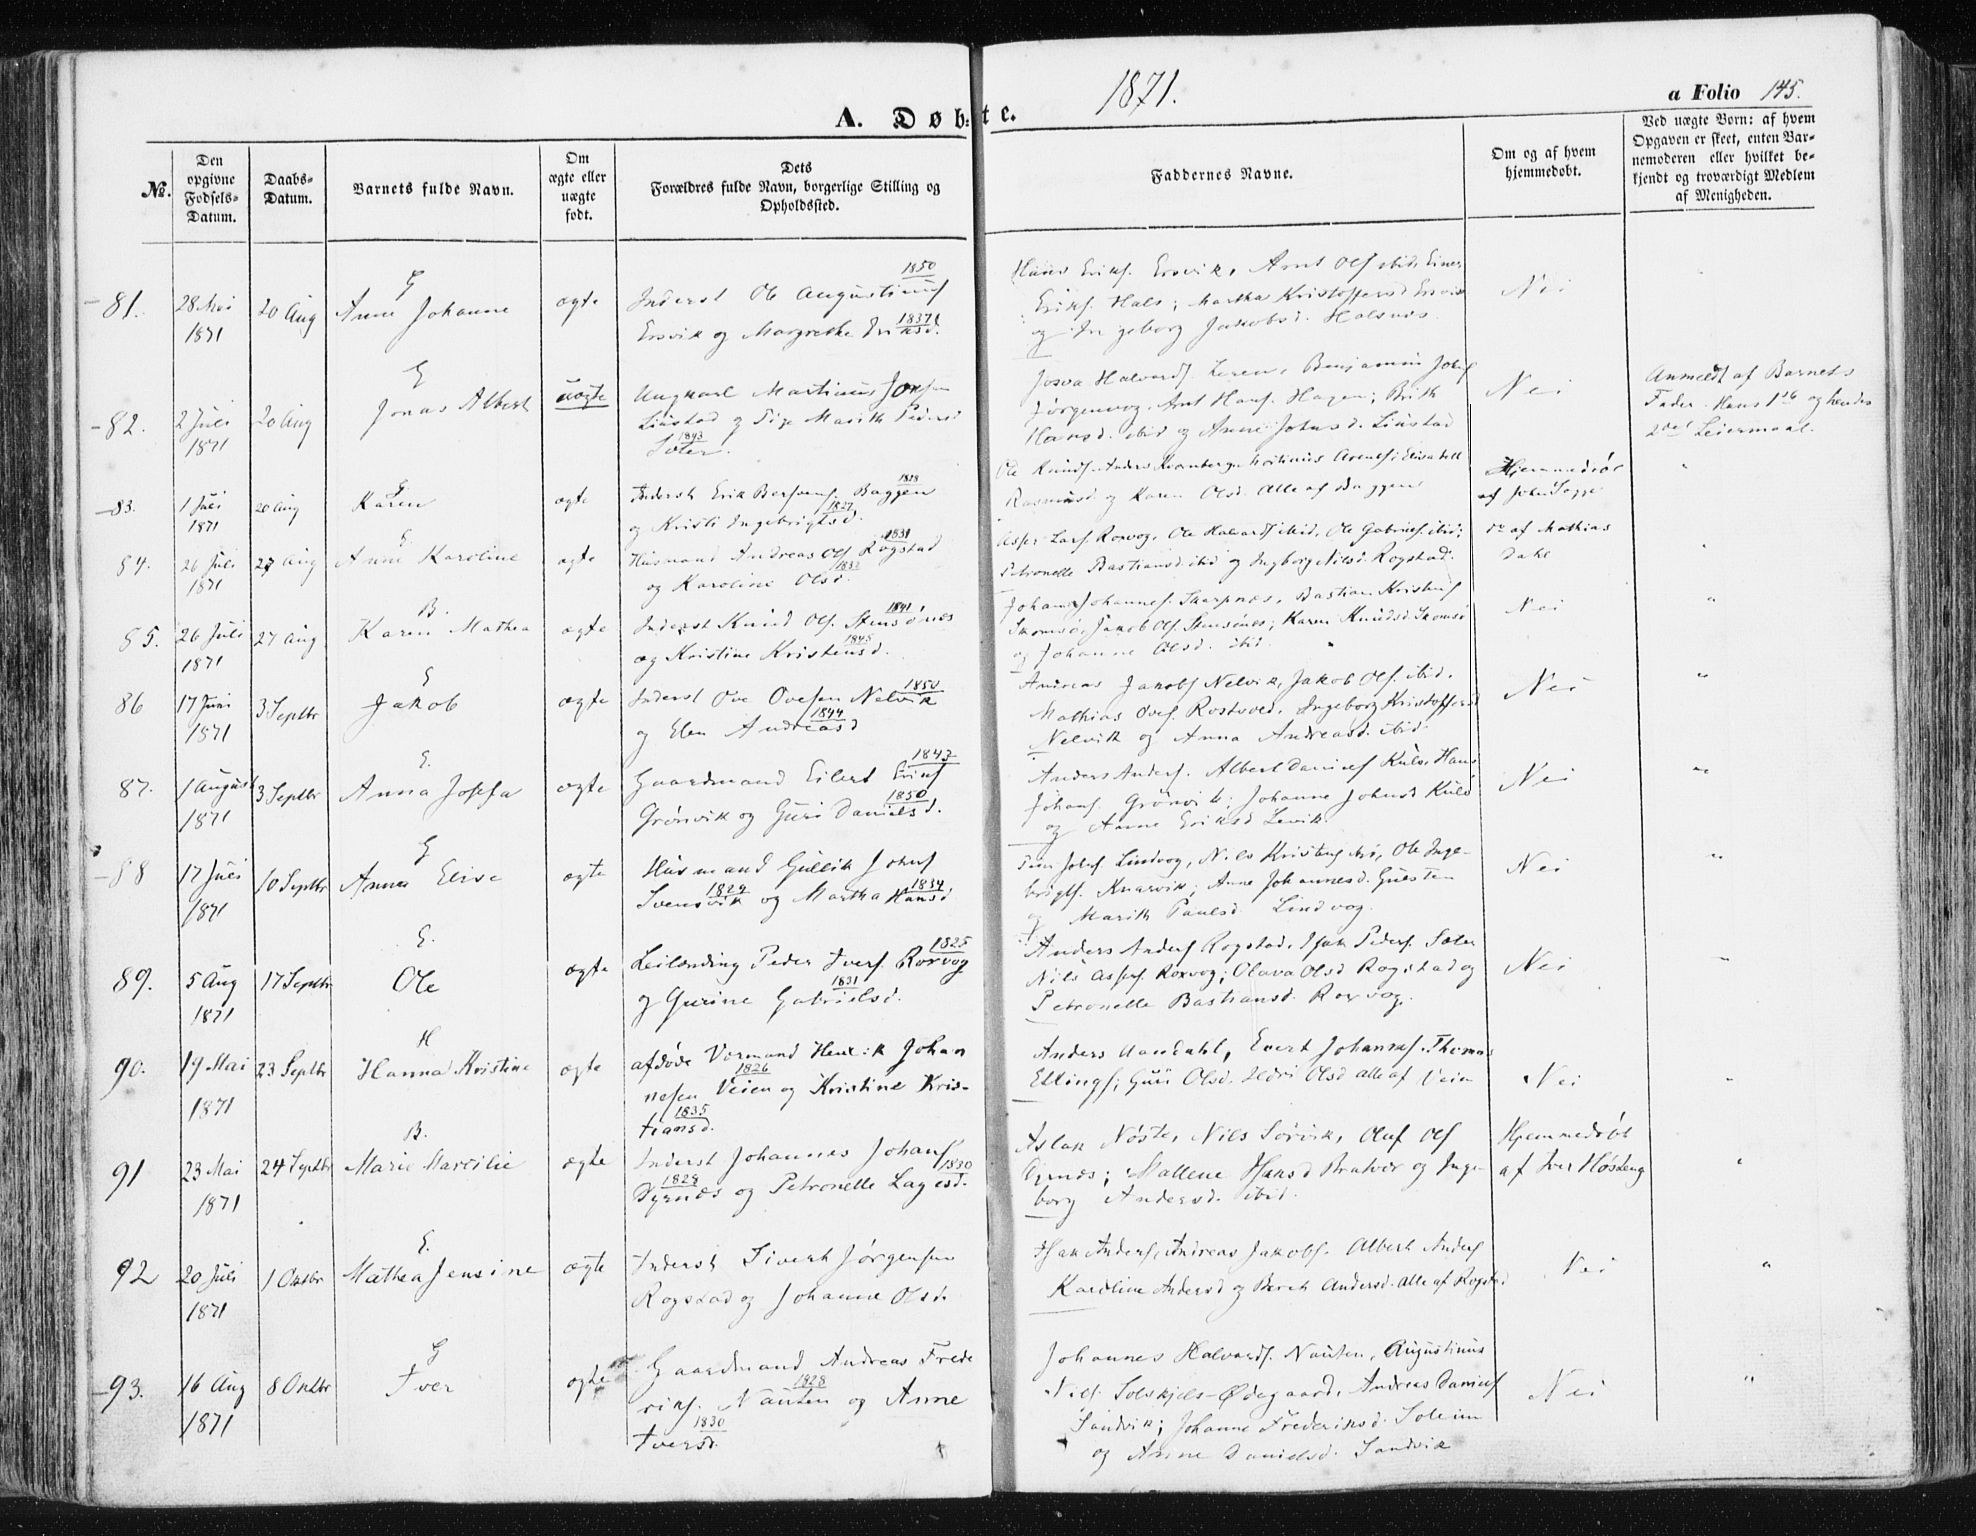 1871.
a Folio 145.
A. Døbte.
No.
Den opgivne Fødsels-Datum.
Daabs-Datum.
Barnets fulde Navn.
Om ægte eller uægte født.
Dets Forældres fulde Navn, borgerlige Stilling og Opholdssted.
Faddernes Navne.
Om og af hvem hjemmedøbt.
Ved uægte Børn: af hvem Opgaven er skeet, enten Barnemoderen eller hvilket bekjendt og troværdigt Medlem af Menigheden.
81. 28 Mai 1871 20 Aug
G
Anne Johanne
ægte
1850
Inderst Ole Augustinus
1837
Ersvik og Margrethe Eriksd.
Hans Eriks. Ersvik, Arnt Ols ibid, Einer
Eriks. Hals; Martha Kristoffersd Ersvik
og Ingeborg Jakobsd. Halsnes.
Nei
82. 2 Juli 1871 20 Aug
G
Jonas Albert
uægte
Ungkarl Martinus
Liustad og Pige Marith Pedersd
1843
Sæter.
Josva Halvards. Leren, Benjamin Johs
Jørgenvog, Arnt Hans. Hagen; Brith
Hansd. ibid og Anne Johnsd. Liustad
Nei
Anmeldt af Barnets
Fader. Hans 1ste og hendes
2det Leiermaal.
83. 1 Juli 1871 20 Aug
G
Karen
ægte
1828
Inderst Erik Bersvens. Baggen
1827
og Kristi Ingebrigtsd.
Ole Knuds. Anders Kornberg Martinus Arents; Elisabeth
Rasmusd og Karen Olsd. Alle af Baggen
Hjemmedøbt
af John Sagge
84. 26 Juli 1871 27 Aug
G
Anne Karoline
ægte
1831
Husmand Andreas Ols Rogstad
1832
og Karoline Olsd.
Asser Lars. Roxvog, Ole Halvards ibid, Ole Gabriels ibid;
Petronelle Bastiansd ibid og Ingborg Nilsd. Rogstad.
do af Mathias
Dahl
85. 26 Juli 1871 27 Aug
B.
Karen Mathea
ægte
1841
Inderst Knud Ols. Stensønes
1845
og Kristine Kristensd.
Johan Johannes. Skarpnes, Bastian Kristens
Skomsø, Jakob Ols Stensønes; Karen Knudsd. Skomsø
og Johanne Olsd. ibid.
Nei
86 17 Juni 1871 3 Septbr
G
Jakob
ægte
1850
Inderst Ove Ovesen Nelvik
1844
og Elen Andreasd
Andreas Jakobs Nelvik, Jakob Ols. ibid.
Mathias Oves. Rostved. Ingeborg Kristoffersd
Nelvik og Anna Andreasd. ibid.
Nei
87. 1 August 1871 3 Septbr
G.
Anna Josefa
ægte
1843
Gaardmand Eilert Eriks
1850
Grønvik og Guri Danielsd.
Anders Anders. Albert Daniels Kulø, Hans
Johans. Grønvik; Johanne Johnsd Kulø
og Anne Eriksd Levik
Nei
88 17 Juli 1871 10 Septbr
G
Anna Elise
ægte
Husmand Gullik Johns
1829 1834
Svensvik og Martha Hansd
Johs Lindvog, Nils Kristens ibid, Ole Inge-
brigts. Knarvik; Anne Johannesd. Gusten
og Marith Paulsd. Lindvog.
Nei
89. 5 Aug 1871 17 Septbr
G.
Ole
ægte
1825
Leilænding Peder Ivers. Roxvog
1831
og Gurine Gabrielsd.
Anders Anders Rogstad, Isak Peders. Sæter
Nils Assers. Roxvog; Olava Olsd Rogstad og
Petronelle Bastiansd. Roxvog.
Nei
90. 19 Mai 1871 23 Septbr
H
Hanna Kristine
ægte
afdøde Vormand Henrik Johan
1826
nesen Veien og Kristine Kris-
1835
tiansd.
Anders Aandahl, Evert Johannes. Thomas
Ellings; Guri Olsd. Ildri Olsd alle af Veien
Nei
91 23 Mai 1871 24 Septbr
B.
Marie Marcilie
ægte
Inderst Johannes Johans
1829 1830
Dyrnæs og Petronelle Lagesd.
Aslak Nøste, Nils Sørvik, Oluf Ols
Dyrnæs; Mallene Hansd Bratvær og Inge-
borg Andersd. ibid.
Hjemmedøbt
af Iver Høsteng
92 20 Juli 1871 1 Oktbr
G.
Mathea Jensine
ægte
Inderst Sivert Jørgensen
Rogstad og Johanne Olsd.
Isak Anders, Andreas Jakobs. Albert Anders
Karoline Andersd og Bereth Andersd. Alle af Rogstad
Nei
93. 16 Aug 1871 8 Oktbr
G
Iver
ægte
Gaardmand Andreas Frede
1828
riks. Nauten og Anne
1830
Iversd.
Johannes Halvards. Nauten, Augustinus
Nils. Solskjels-Ødegaard, Andreas Daniels
Sandvik; Johanne Frederiksd. Soleim
og Anne Danielsd. Sandvik
Nei